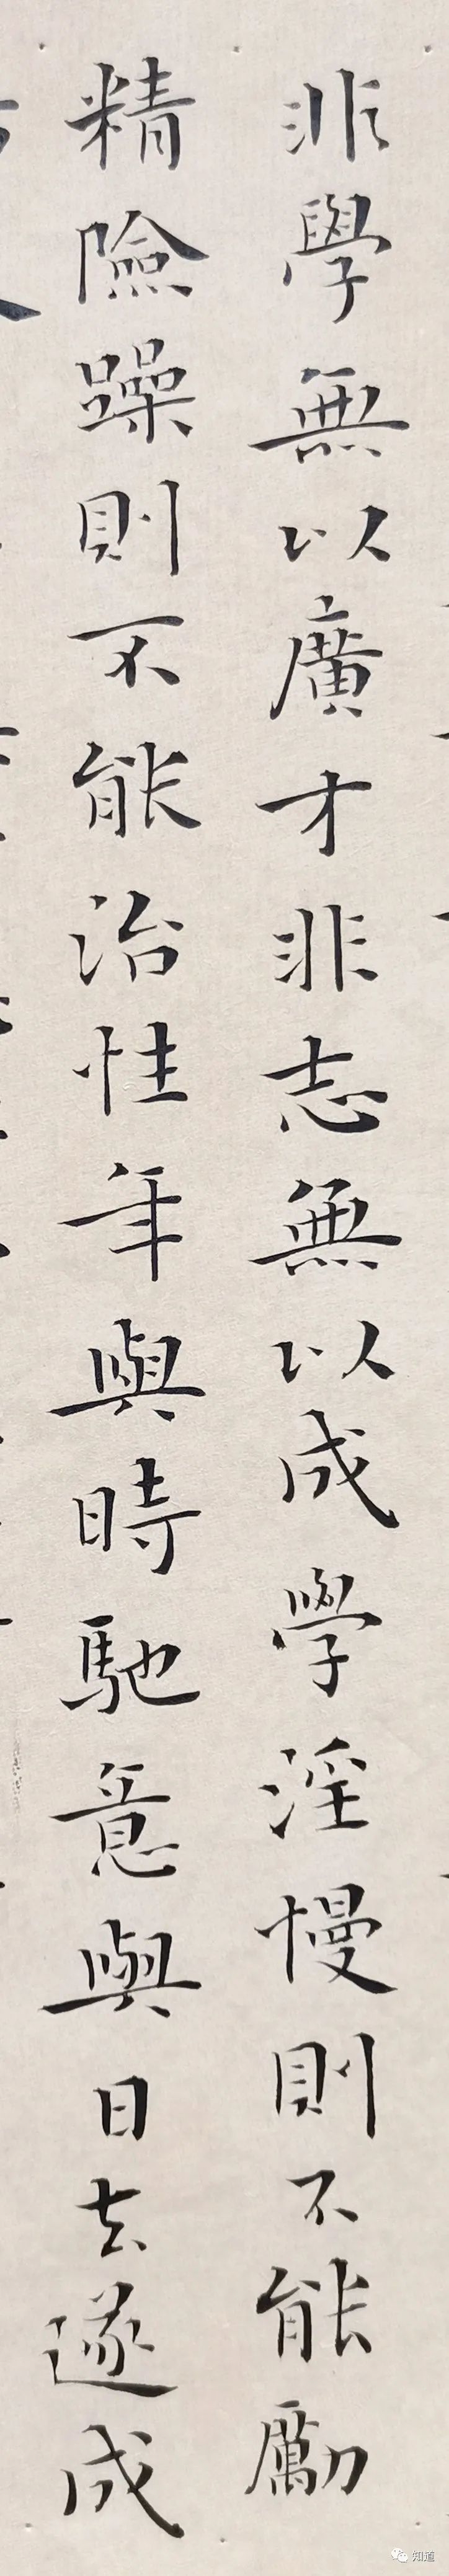 非學無以廣才非志無以成學淫慢則不能勵
精險躁則不能治性年與時馳意與日去遂成
知道